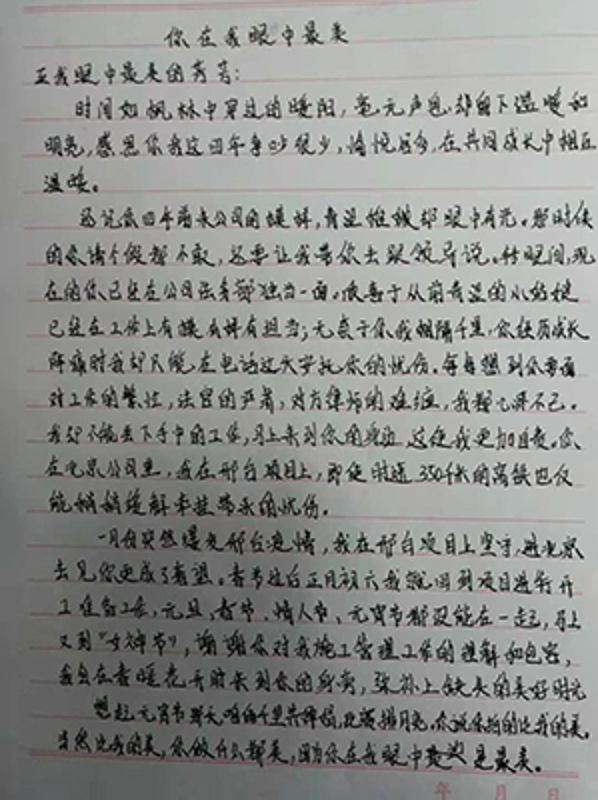 你在我眼中最美
致我眼中最美的芳芳:
时间如枫林中穿过的暖阳,毫无声息,却留下温暖和
明亮,感恩你我这四年争吵很少,愉悦居多,在共同成长中相互
温暖。
还记你四年前来公司的模样,青涩稚嫩却眼中有光。那时候
的你请个假都不敢,还要让我带你去跟领导说。转眼间,现
在的你已经在公司法务部独当一面。很喜于从前青涩的小姑娘
已经在工作上有模有样有担当;无奈于你我相隔千里,你经历成长
阵痛时我却只能在电话这头安抚你的忧伤。每每想到你要面
对工作的繁忙,法官的严肃,对方律师的难缠,我都心疼不已。
我却不能丢下手中的工作,马上来到你的身边,这使我更加自责。你
在北京公司里,我在邢台项目上,即使时速350千米的高铁也仅
能稍稍缓解牵挂带来的忧伤。
一月份突然爆发邢台疫情,我在邢台项目上坚守,进北京
去见你更成了奢望。春节过后正月初六我就回到项目进行开
工准备工作,元旦、春节、情人节、元宵节都没能在一起,马上
又到“女神节”,谢谢你对我施工管理工作的理解和包容,
我会在春暖花开时来到你的身旁,弥补上缺失的美好时光
想起元宵节那天咱俩千里共婵娟,视频拍月亮,你说你拍的比我的美,
当然比我的美,你做什么都美,因为你在我眼中是最美。
年 月 日